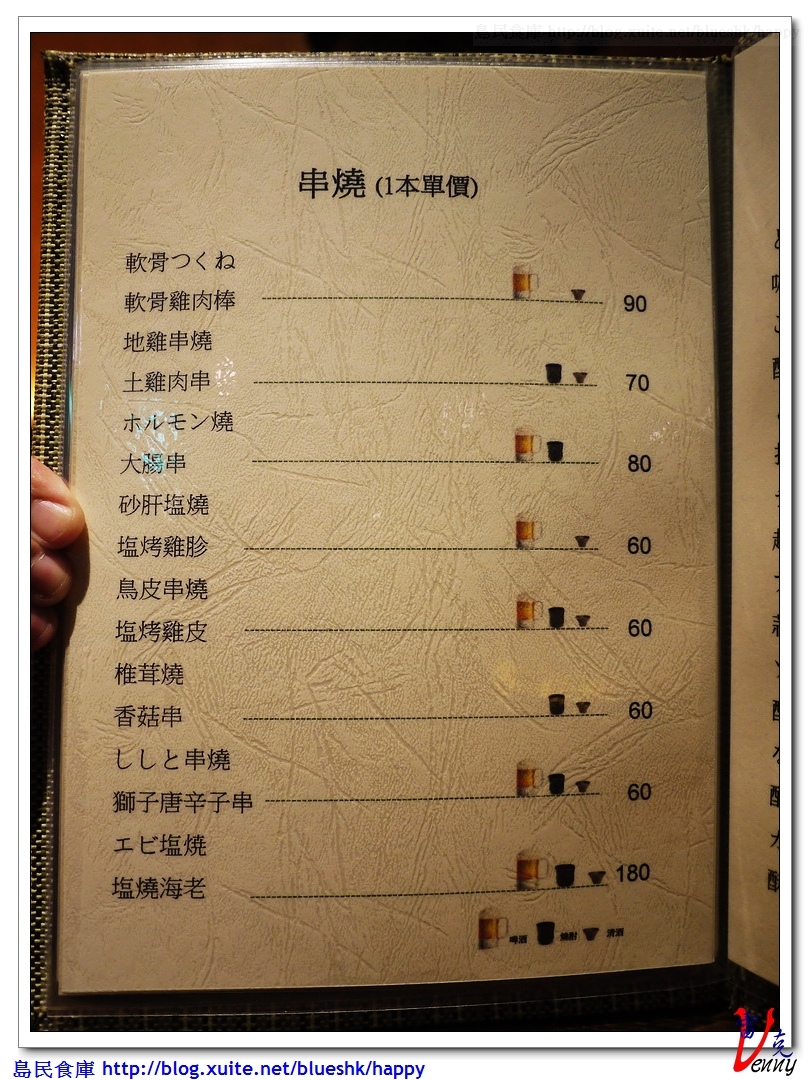 島民食庫 http://blog.xuite.net/blueshk/happy
串燒 (1本單價)
軟骨つくね
軟骨雞肉棒 90
地雞串燒
土雞肉串 70
ホルモン燒
大腸串 80
砂肝塩燒
塩烤雞胗 60
鳥皮串燒
塩烤雞皮 60
椎茸燒
香菇串 60
ししと串燒
獅子唐辛子串 60
エビ塩燒
塩燒海老 180
啤酒 燒酎 清酒
島民食庫 http://blog.xuite.net/blueshk/happy
Venny